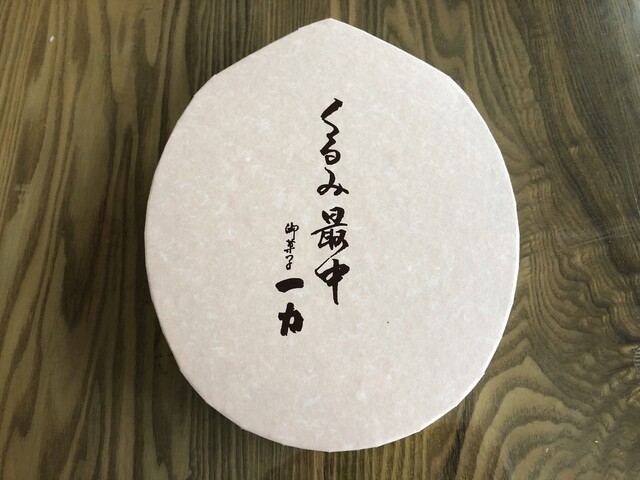 くるみ最中
御菓子 一力